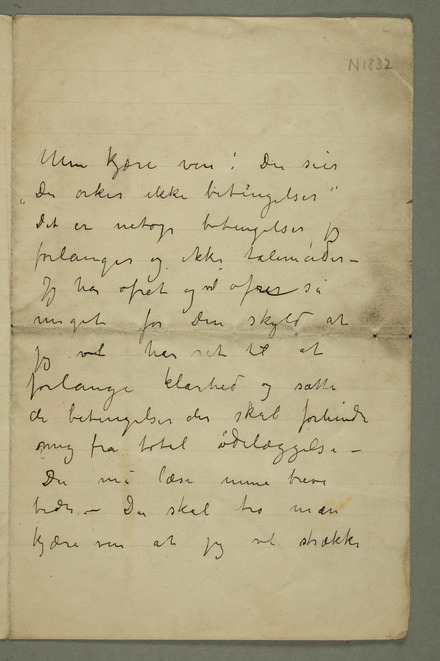 N1832
Min kjære ven! Du sier
„Du orker ikke betingelser"
Det er netop betingelser jeg
forlanger og ikke talemåder –
Jeg har ofret og vil ofre så
meget for din skyld at
jeg vel har ret til at
forlange klarhed og sætte
de betingelser der skal forhindre
mig fra total ødelæggelse –
Du må læse mine breve
bedre. – Du skal tro min
kjære ven at jeg vil strække